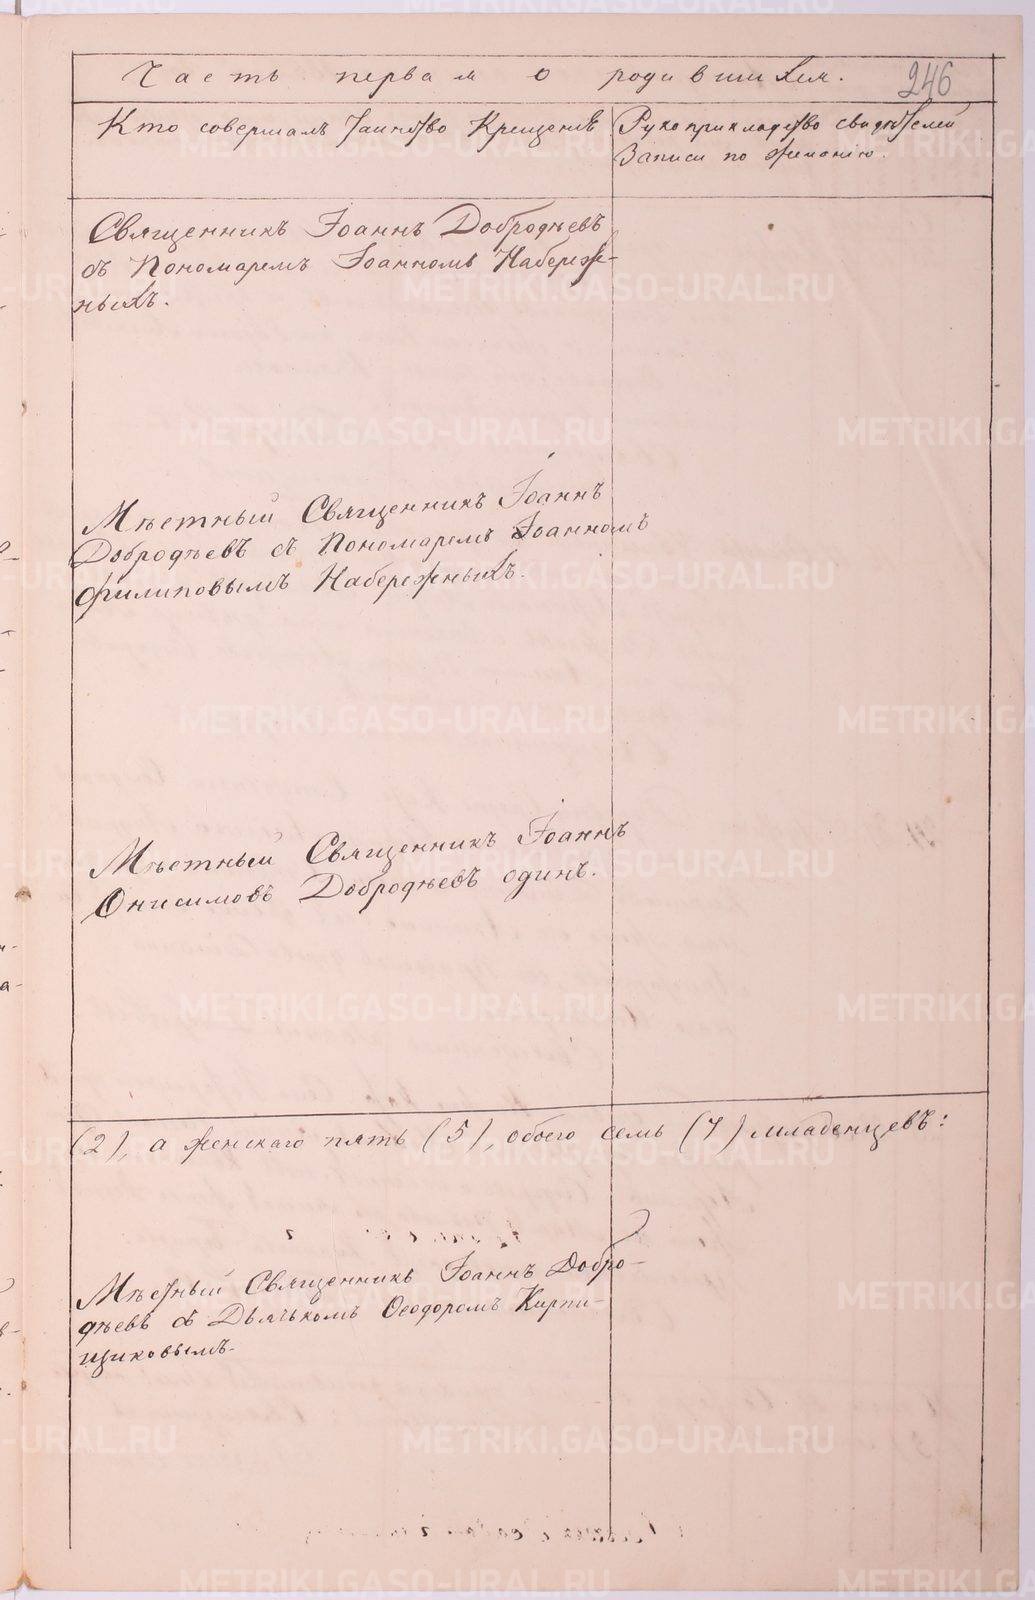 Часть первая о родившихся.
246
Кто совершалъ Таинство Крещенія
Рукоприкладство свидѣтелей
Записи по желанію.
Священникъ Іоаннъ Добродѣевъ
съ Пономаремъ Іоанномъ Набереж-
ныхъ.
Мѣстный Священникъ Іоаннъ
Добродѣевъ съ Пономаремъ Іоанномъ
Филиповымъ Набережныхъ.
Мѣстный Священникъ Іоаннъ
Онисимовъ Добродѣевъ одинъ.
(2), а женскаго пять (5), обоего семь (7) младенцевъ:
Мѣстный Священникъ Іоаннъ Добро-
дѣевъ съ Дьячькомъ Ѳеодоромъ Кирпи-
щиковымъ.
METRIKI.GASO-URAL.RU